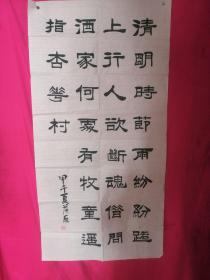 清明時節雨紛紛路
上行人欲斷魂借問
酒家何處有牧童遥
指杏華村
甲午夏